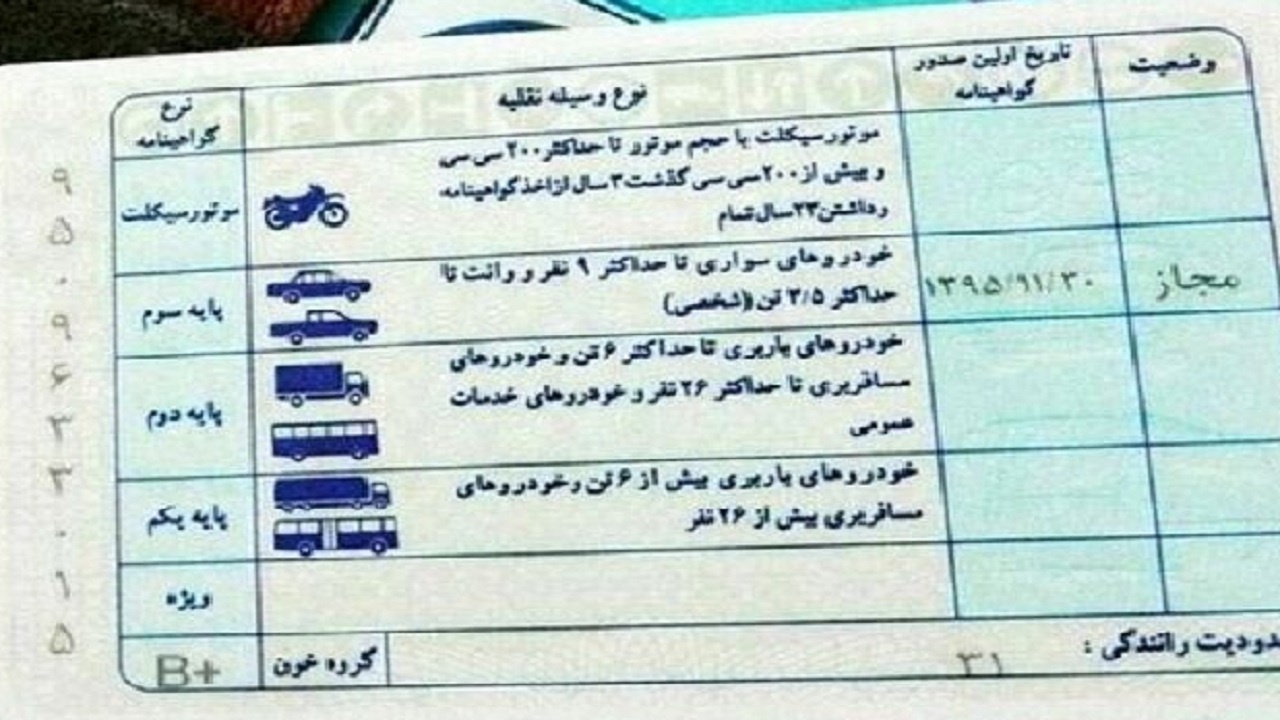 وضعیت
تاریخ اولین صدور
گواهینامه
نوع وسیله نقلیه
نوع
گواهینامه
موتورسیکلت با حجم موتور تا حداکثر ۲۰۰ سی سی
و بیش از ۲۰۰ سی سی گذشت ۳ سال از اخذ گواهینامه
رداشتن ۲۳ سال تمام
موتورسیکلت
مجاز
۱۳۹۵/۹۱/۳۰
خودروهای سواری تا حداکثر ۹ نفر و وانت تا
حداکثر ۳/۵ تن (شخصی)
پایه سوم
خودروهای باربری تا حداکثر ۶ تن و خودروهای
مسافربری تا حداکثر ۲۶ نفر و خودروهای خدمات
عمومی
پایه دوم
خودروهای باربری بیش از ۶ تن و خودروهای
مسافربری بیش از ۲۶ نفر
پایه یکم
ویژه
دودیت رانندگی :
۳۱
گروه خون
B+
۹
۵
۰
۹
۶
۳
۳
۰
۱
۵